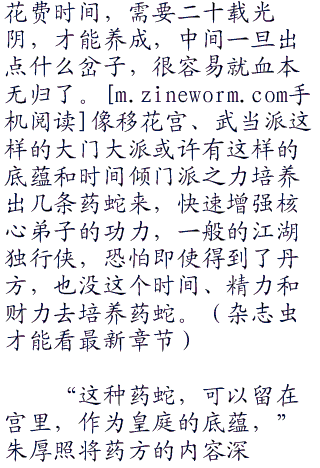 花费时间，需要二十载光
阴，才能养成，中间一旦出
点什么岔子，很容易就血本
无归了。[m.zineworm.com手
机阅读]像移花宫、武当派这
样的大门大派或许有这样的
底蕴和时间倾门派之力培养
出几条药蛇来，快速增强核
心弟子的功力，一般的江湖
独行侠，恐怕即使得到了丹
方，也没这个时间、精力和
财力去培养药蛇。（杂志虫
才能看最新章节）
“这种药蛇，可以留在
宫里，作为皇庭的底蕴，”
朱厚照将药方的内容深